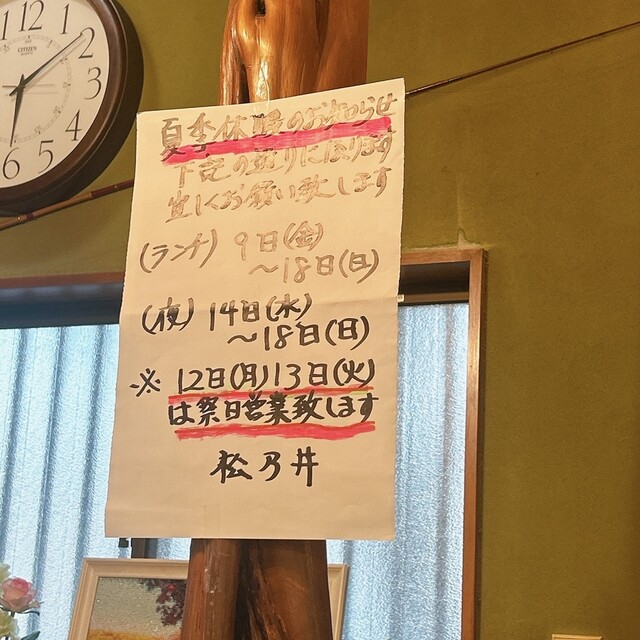 夏季休暇のお知らせ
下記の通りになります
宜しくお願い致します
(ランチ) 9日(金)
～18日(日)
(夜) 14日(水)
～18日(日)
※ 12日(月)13日(火)
は祭日営業致します
松乃井
12
1
2
3
4
5
6
CITIZEN